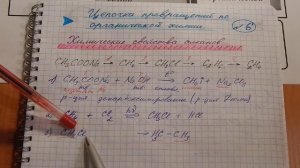 Цепочка превращений по
органической химии. №6
Химические свойства алканов.
CH₃COONa → CH₄ → CH₃Cl → C₂H₆ →
1) CH₃COONa + NaOH → CH₄↑ + Na₂CO₃
р-ция декарбоксилирования (р-ция Дюма)
+ Cl₂ hν → CH₃Cl + HCl
→ H₃C-CH₃